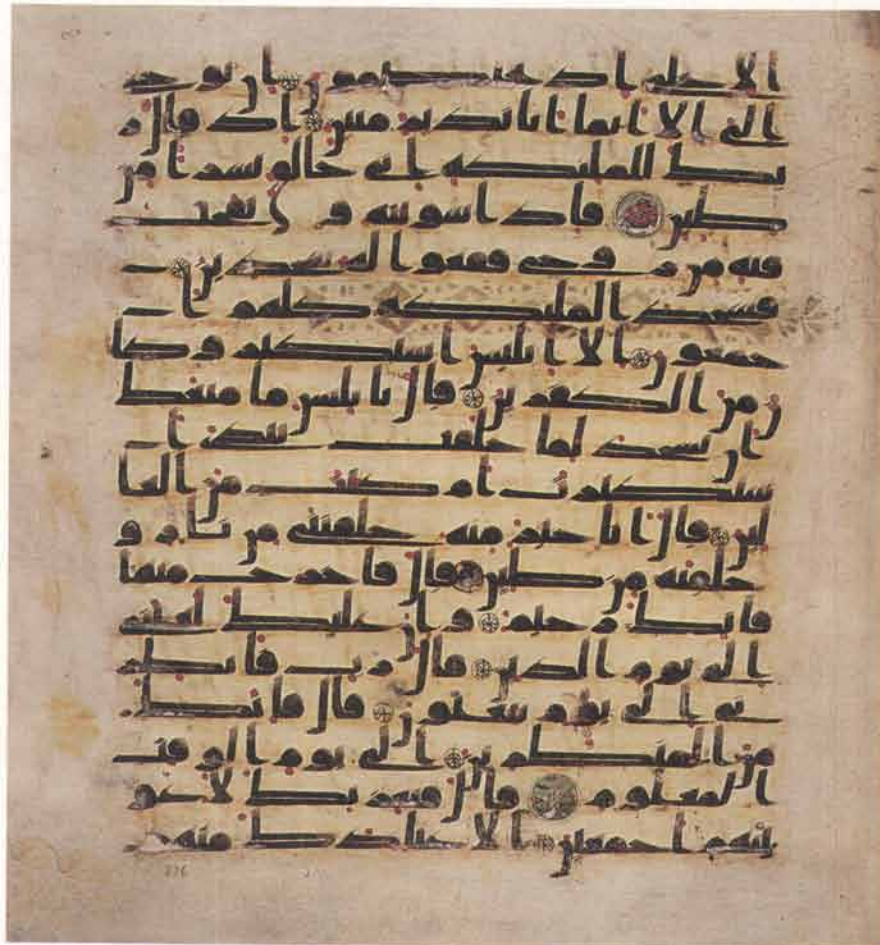 الاعلى اذ يختصمون ان يوحى
الي الا انما انا نذير مبين اذ قال ر
بك للملئكة اني خالق بشرا من
طين فاذا سويته و نفخت
فيه من روحي فقعوا له سجدين
فسجد الملئكة كلهم ا
جمعون الا ابليس استكبر وكا
ن من الكفرين قال يا بليس ما منعك
ان تسجد لما خلقت بيدي ا
ستكبرت ام كنت من العا
لين قال انا خير منه خلقتني من نار و
خلقته من طين قال فاخرج منها
فانك رجيم وان عليك لعنتي
الى يوم الدين قال رب فانظر
ني الى يوم يبعثون قال فانك
من المنظرين الى يوم الوقت
المعلوم قال فبعزتك لاغو
ينهم اجمعين الا عبادك منهم